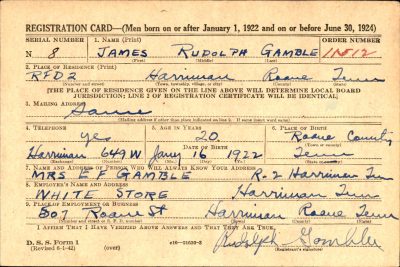 REGISTRATION CARD—(Men born on or after January 1, 1922 and on or before June 30, 1924)
SERIAL NUMBER 1. NAME (Print) ORDER NUMBER
N 8 JAMES RUDOLPH GAMBLE 11512
(First) (Middle) (Last)
2. PLACE OF RESIDENCE (Print)
RFD2 Harriman Roane Tenn
(Number and street) (Town, township, village, or city) (County) (State)
[THE PLACE OF RESIDENCE GIVEN ON THE LINE ABOVE WILL DETERMINE LOCAL BOARD
JURISDICTION; LINE 2 OF REGISTRATION CERTIFICATE WILL BE IDENTICAL]
3. MAILING ADDRESS
Same
(Mailing address if other than place indicated on line 2. If same insert word same)
4. TELEPHONE 5. AGE IN YEARS 6. PLACE OF BIRTH
Yes 20 Roane County
DATE OF BIRTH (Town or county)
Harriman 649W Jany 16 1922 Tenn
(Exchange) (Number) (Mo.) (Day) (Yr.) (State or country)
7. NAME AND ADDRESS OF PERSON WHO WILL ALWAYS KNOW YOUR ADDRESS
MRS E F GAMBLE R.2 Harriman Tenn
8. EMPLOYER'S NAME AND ADDRESS
WHITE STORE Harriman Tenn
9. PLACE OF EMPLOYMENT OR BUSINESS
507 Roane St Harriman Roane Tenn
(Number and street or R. F. D. number) (Town) (County) (State)
I AFFIRM THAT I HAVE VERIFIED ABOVE ANSWERS AND THAT THEY ARE TRUE.
D. S. S. Form 1
(Revised 6-1-42) (over) Rudolph Gamble
(Registrant's signature)